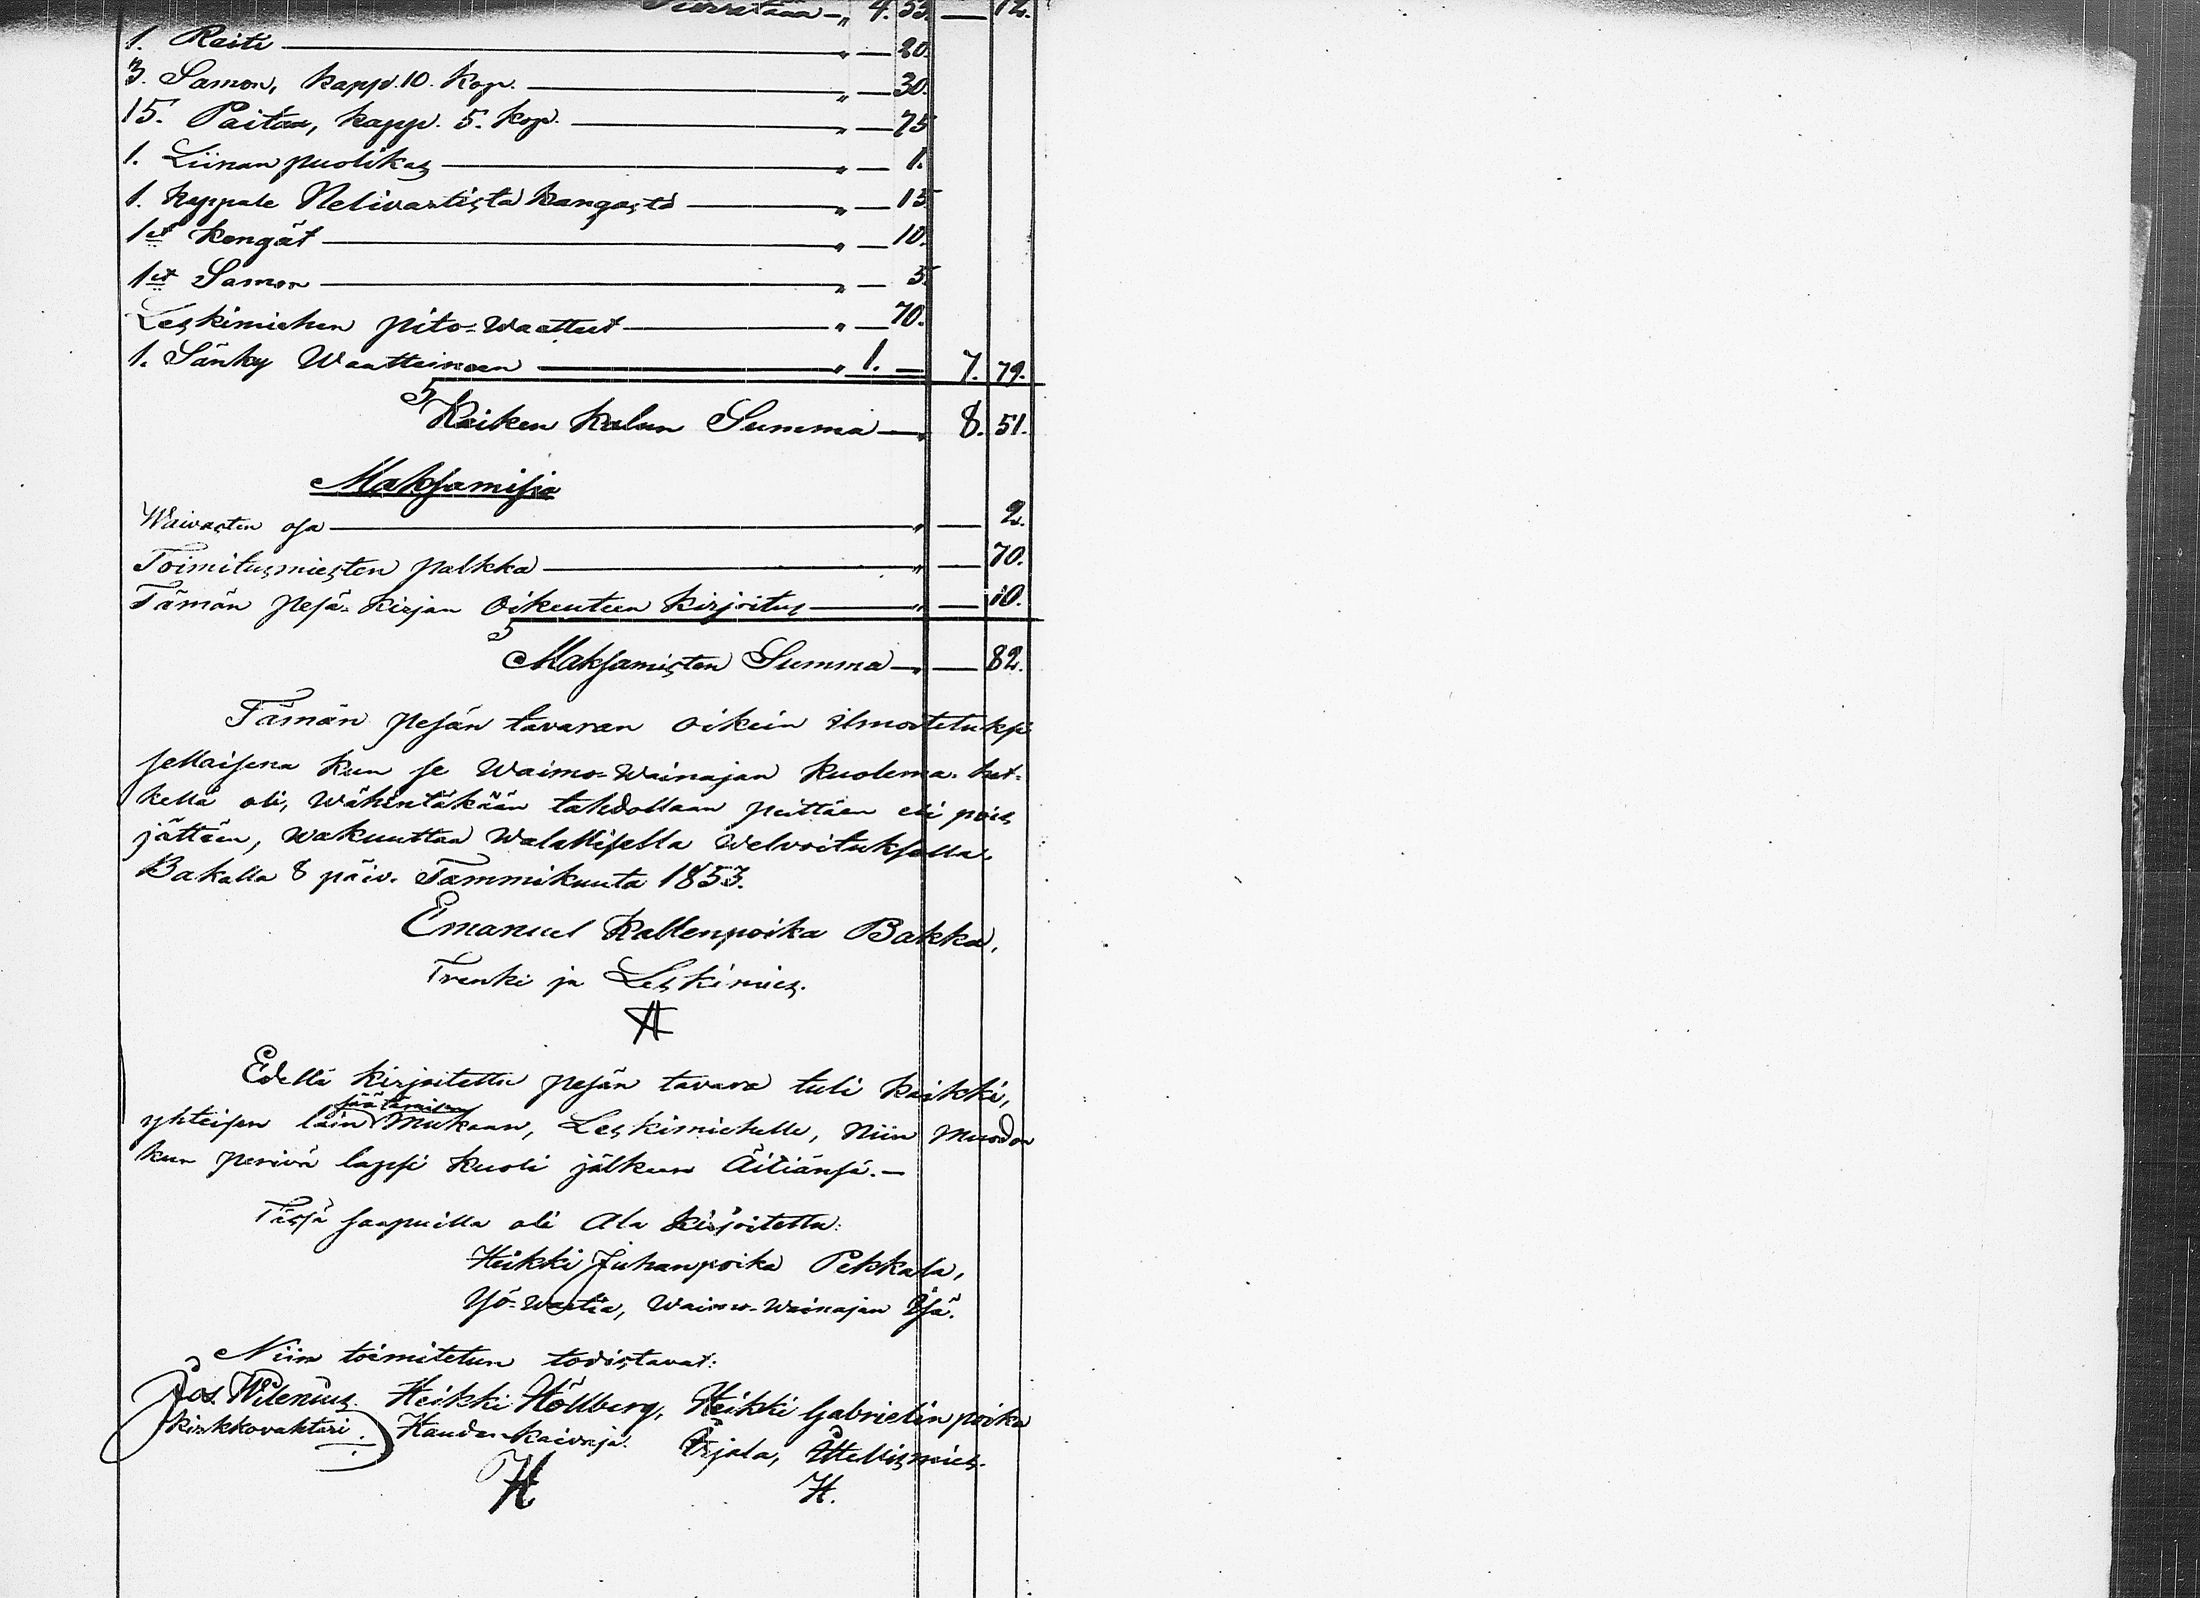 Siirretään — „ 4. 53. — 12.
1. Raiti — „ — 20.
3. Samon, kapp. 10. kop. — „ — 30.
15. Paitaa, kapp. 5. kop. — „ — 75
1. Liinan puolikas — „ — 1.
1. kappale Nelivartista kangasta — „ — 15
1et kengät — „ — 10.
1et Samon — „ — 5.
Leskimiehen pito-waatteet — „ — 70.
1. Sänky Waatteineen — „ 1. — 7. 79.
Kaiken kalun Summa — „ 8. 51.
Maksamisia
Waivasten osa — „ — 2.
Toimitusmiesten palkka — „ — 70.
Tämän pesä-kirjan Oikeuteen kirjoitus — „ — 10.
Maksamisten Summa — „ — 82.
Tämän pesän tavaran oikein ilmoitetuksi
sellaisena kun se Waimo-Wainajan kuolema-het-
kellä oli, Wähintäkään tahdollaan peittäen eli pois
jättäen, wakuuttaa Walallisella Welvoituksella.
Bakalla 8 päiv. Tammikuuta 1853.
Emanuel Kallenpoika Bakka,
Trenki ja Leskimies.
Edellä kirjoitettu pesän tavara tuli kaikki,
säätämisen
yhteisen lain Mukaan, Leskimiehelle, Niin muodon
kun perivä lapsi kuoli jälkeen Äitiänsä. —
Tässä saapuilla oli Ala kirjoitettu:
Heikki Juhanpoika Pekkala,
Yö-Wartia, Waimo-Wainajan Isä.
Niin toimitetun todistavat:
Jos. Wilenius. Heikki Höllberg, Heikki Gabrielin poika
kirkkovahtari. Haudan kaivaja. Örjala, Itellismies.
H H.